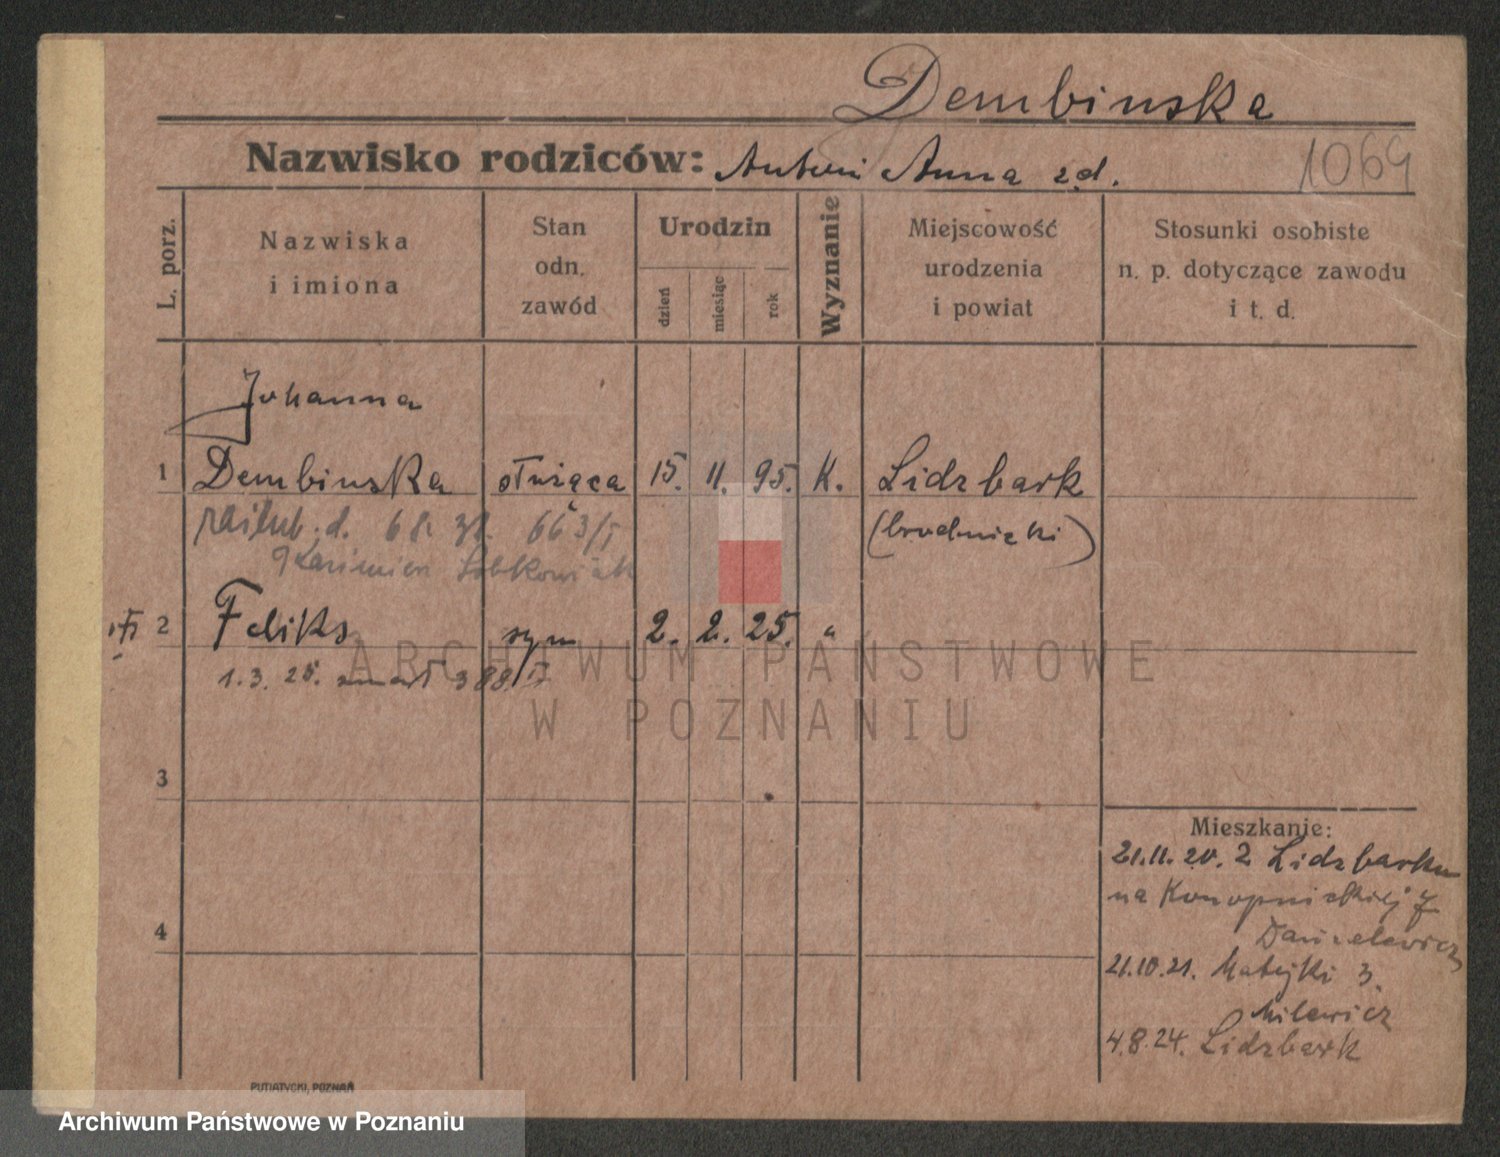 Dembinska
Nazwisko rodziców: Antoni Anna zd.
1069
L. porz.
Nazwiska i imiona
Stan odn. zawód
Urodzin
dzień
miesiąc
rok
Wyznanie
Miejscowość urodzenia i powiat
Stosunki osobiste n. p. dotyczące zawodu i t. d.
Johanna
1 Dembinska służąca 15. 11. 95. K. Lidzbark
(brodnicki)
2 Feliks syn 2. 2. 25. "
1.3.25. zmarł 388/II
3
4
Mieszkanie:
21.11.20. z Lidzbarka
na Konopnickiej 7
21.10.21. Matejki 3.
Milewicz
4.8.24. Lidzbark
PUTIATYCKI, POZNAŃ
ARCHIWUM PAŃSTWOWE
W POZNANIU
Archiwum Państwowe w Poznaniu